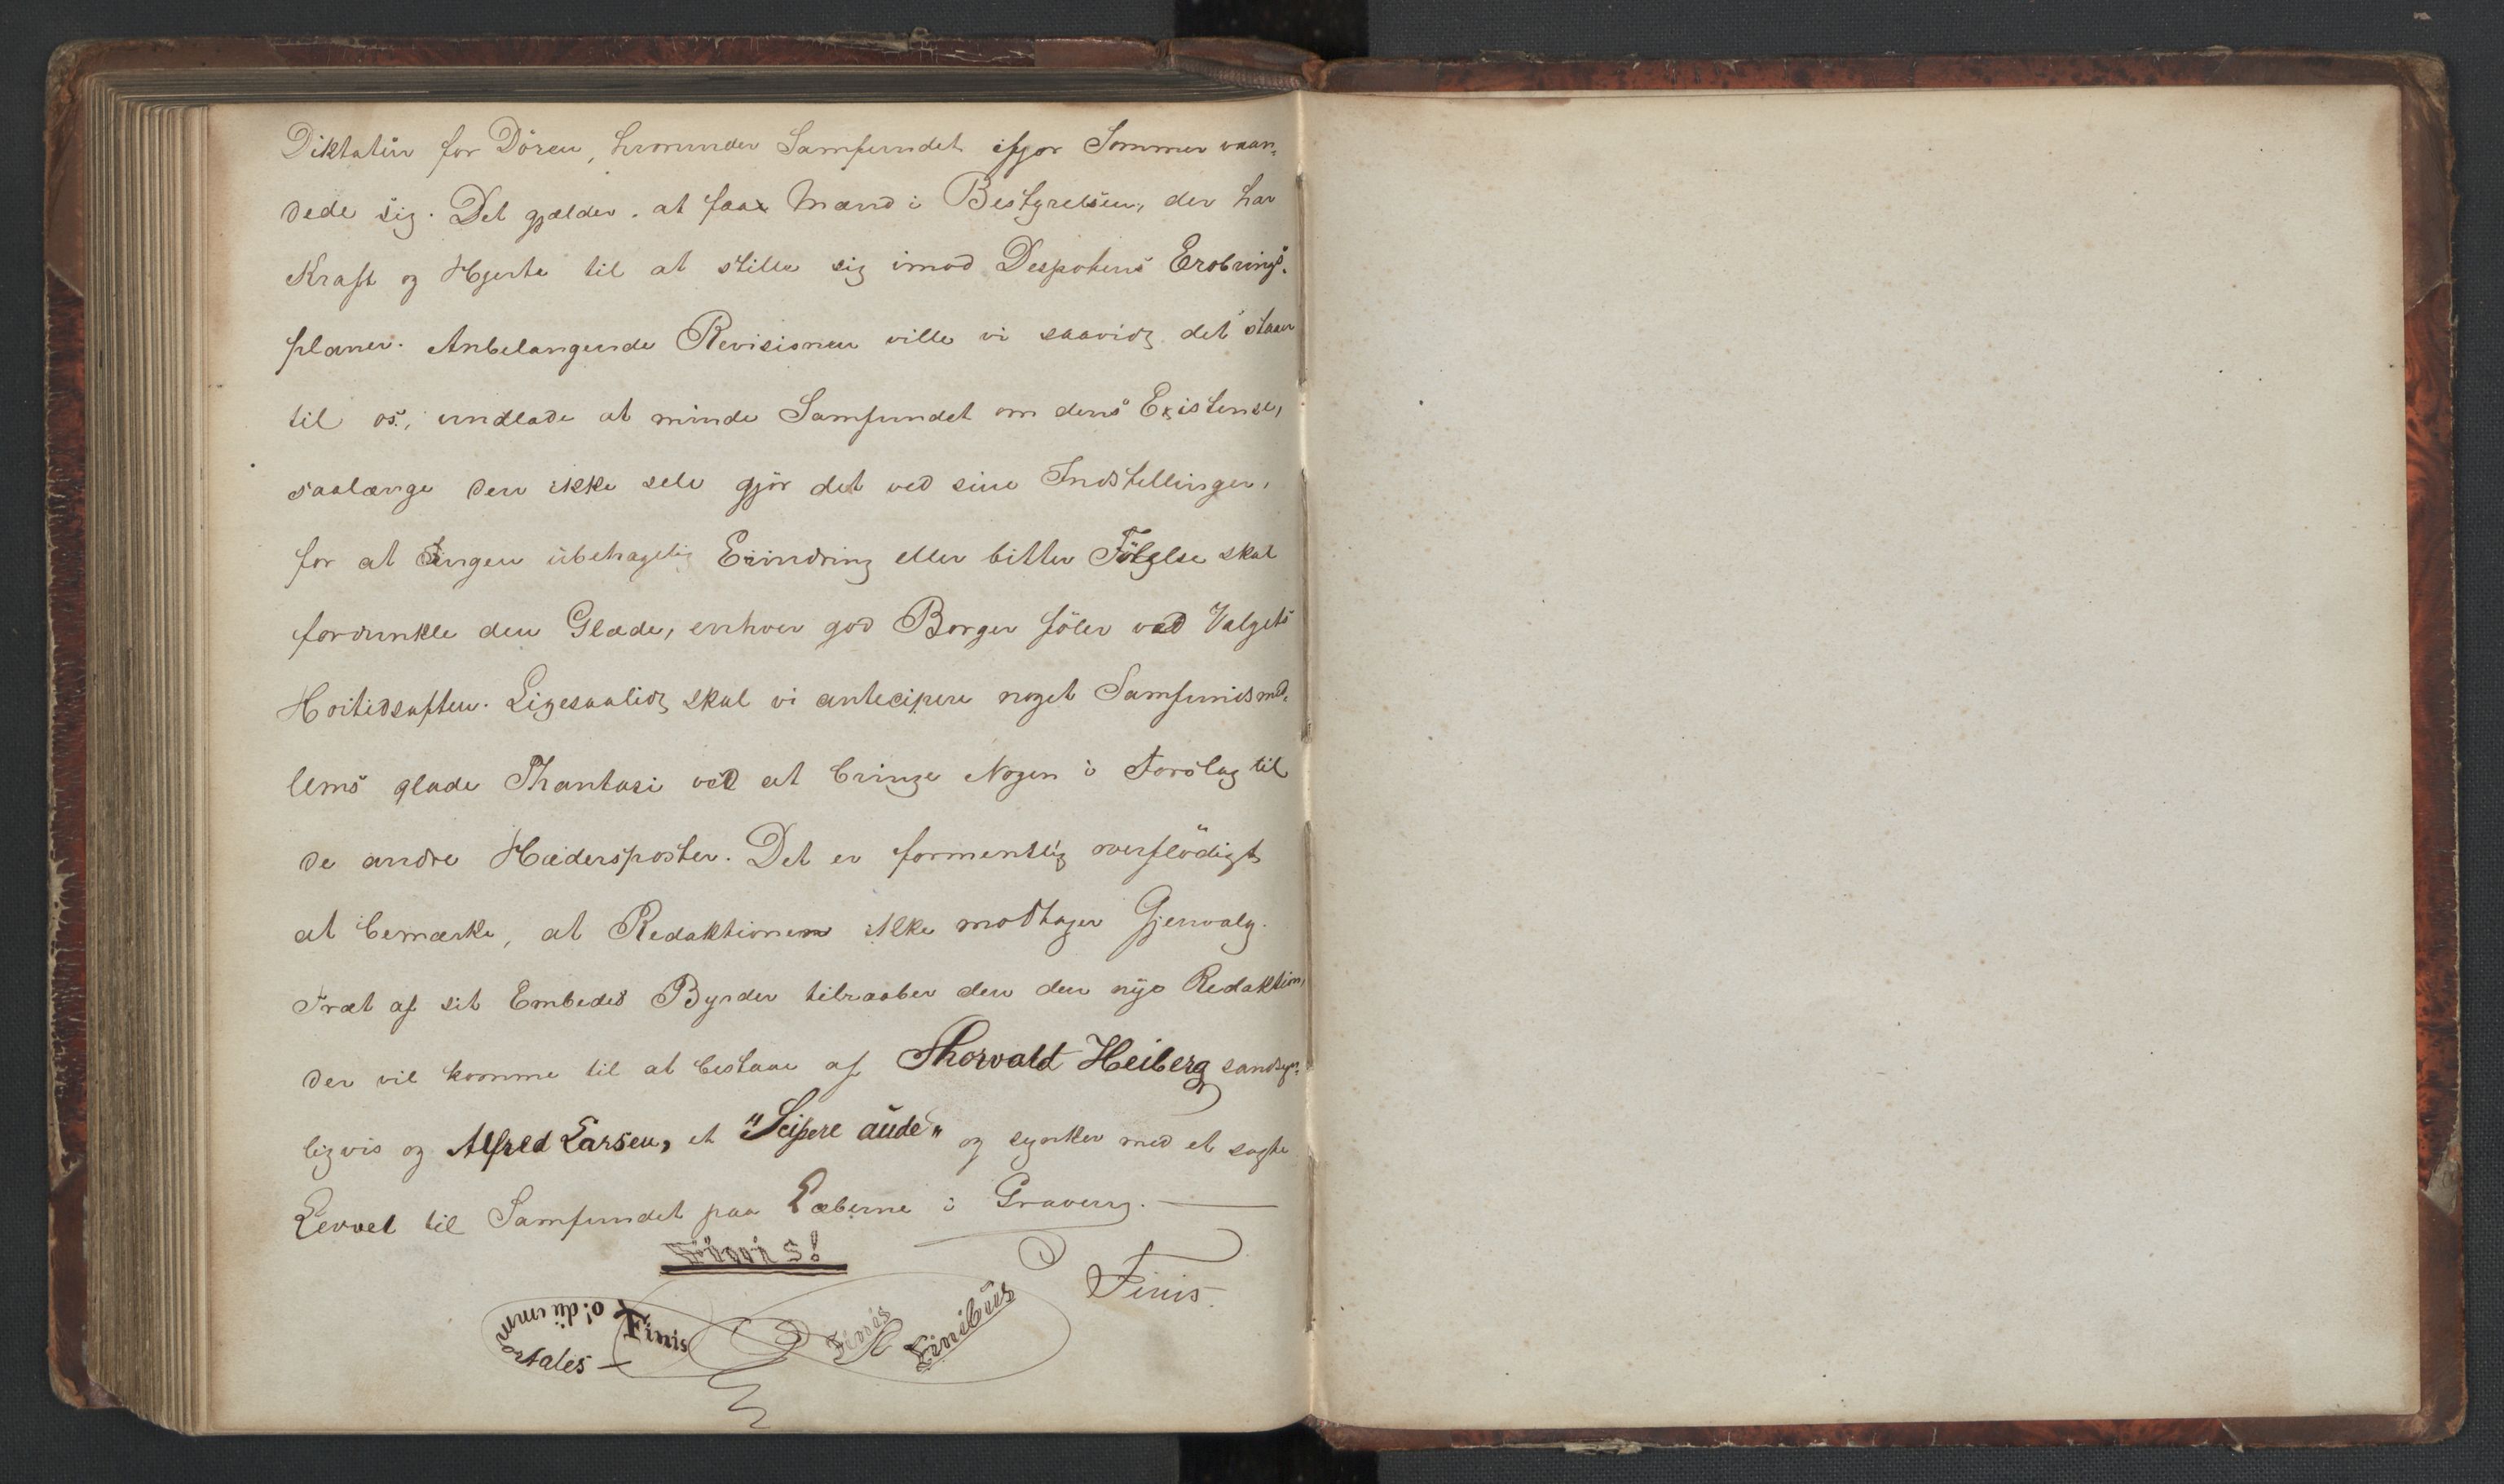 Diktatur for Dören, hvorunder Samfundet ifjor Sommer vaan-
dede sig. Det gjælder at faa Mænd i Bestyrelsen, der har
Kraft og Hjerte til at stille sig imod Despotens Erobrings-
planer. Anbelangende Revisionen ville vi saavidt det staar
til os, undlade at minde Samfundet om dens Existense,
saalænge den ikke selv gjör det ved sine Indstillinger,
for at Ingen ubehagelig Erindring eller bitter Fölelse skal
fordunkle den Glæde, enhver god Borger föler ved Valgets
Hoitidsaften. Ligesaalidt skal vi antecipere noget Samfundsmed-
lems glade Phantasi ved at bringe Nogen i Forslag til
de andre Hædersposter. Det er formentlig overflödigt
at bemærke, at Redaktionen ikke modtager Gjenvalg.
Træt af sit Embedes Byrder tilraaber den den nye Redaktion,
der vil komme til at bestaae af Thorvald Heiberg sandsyn-
ligvis og Alfred Larsen, et "Scipere aude" og synker med et sagte
Levvel til Samfundet paa Læberne i Graven.
Finis!
Finis.
o! di imm
ortales
Finis
Finis
Finibus